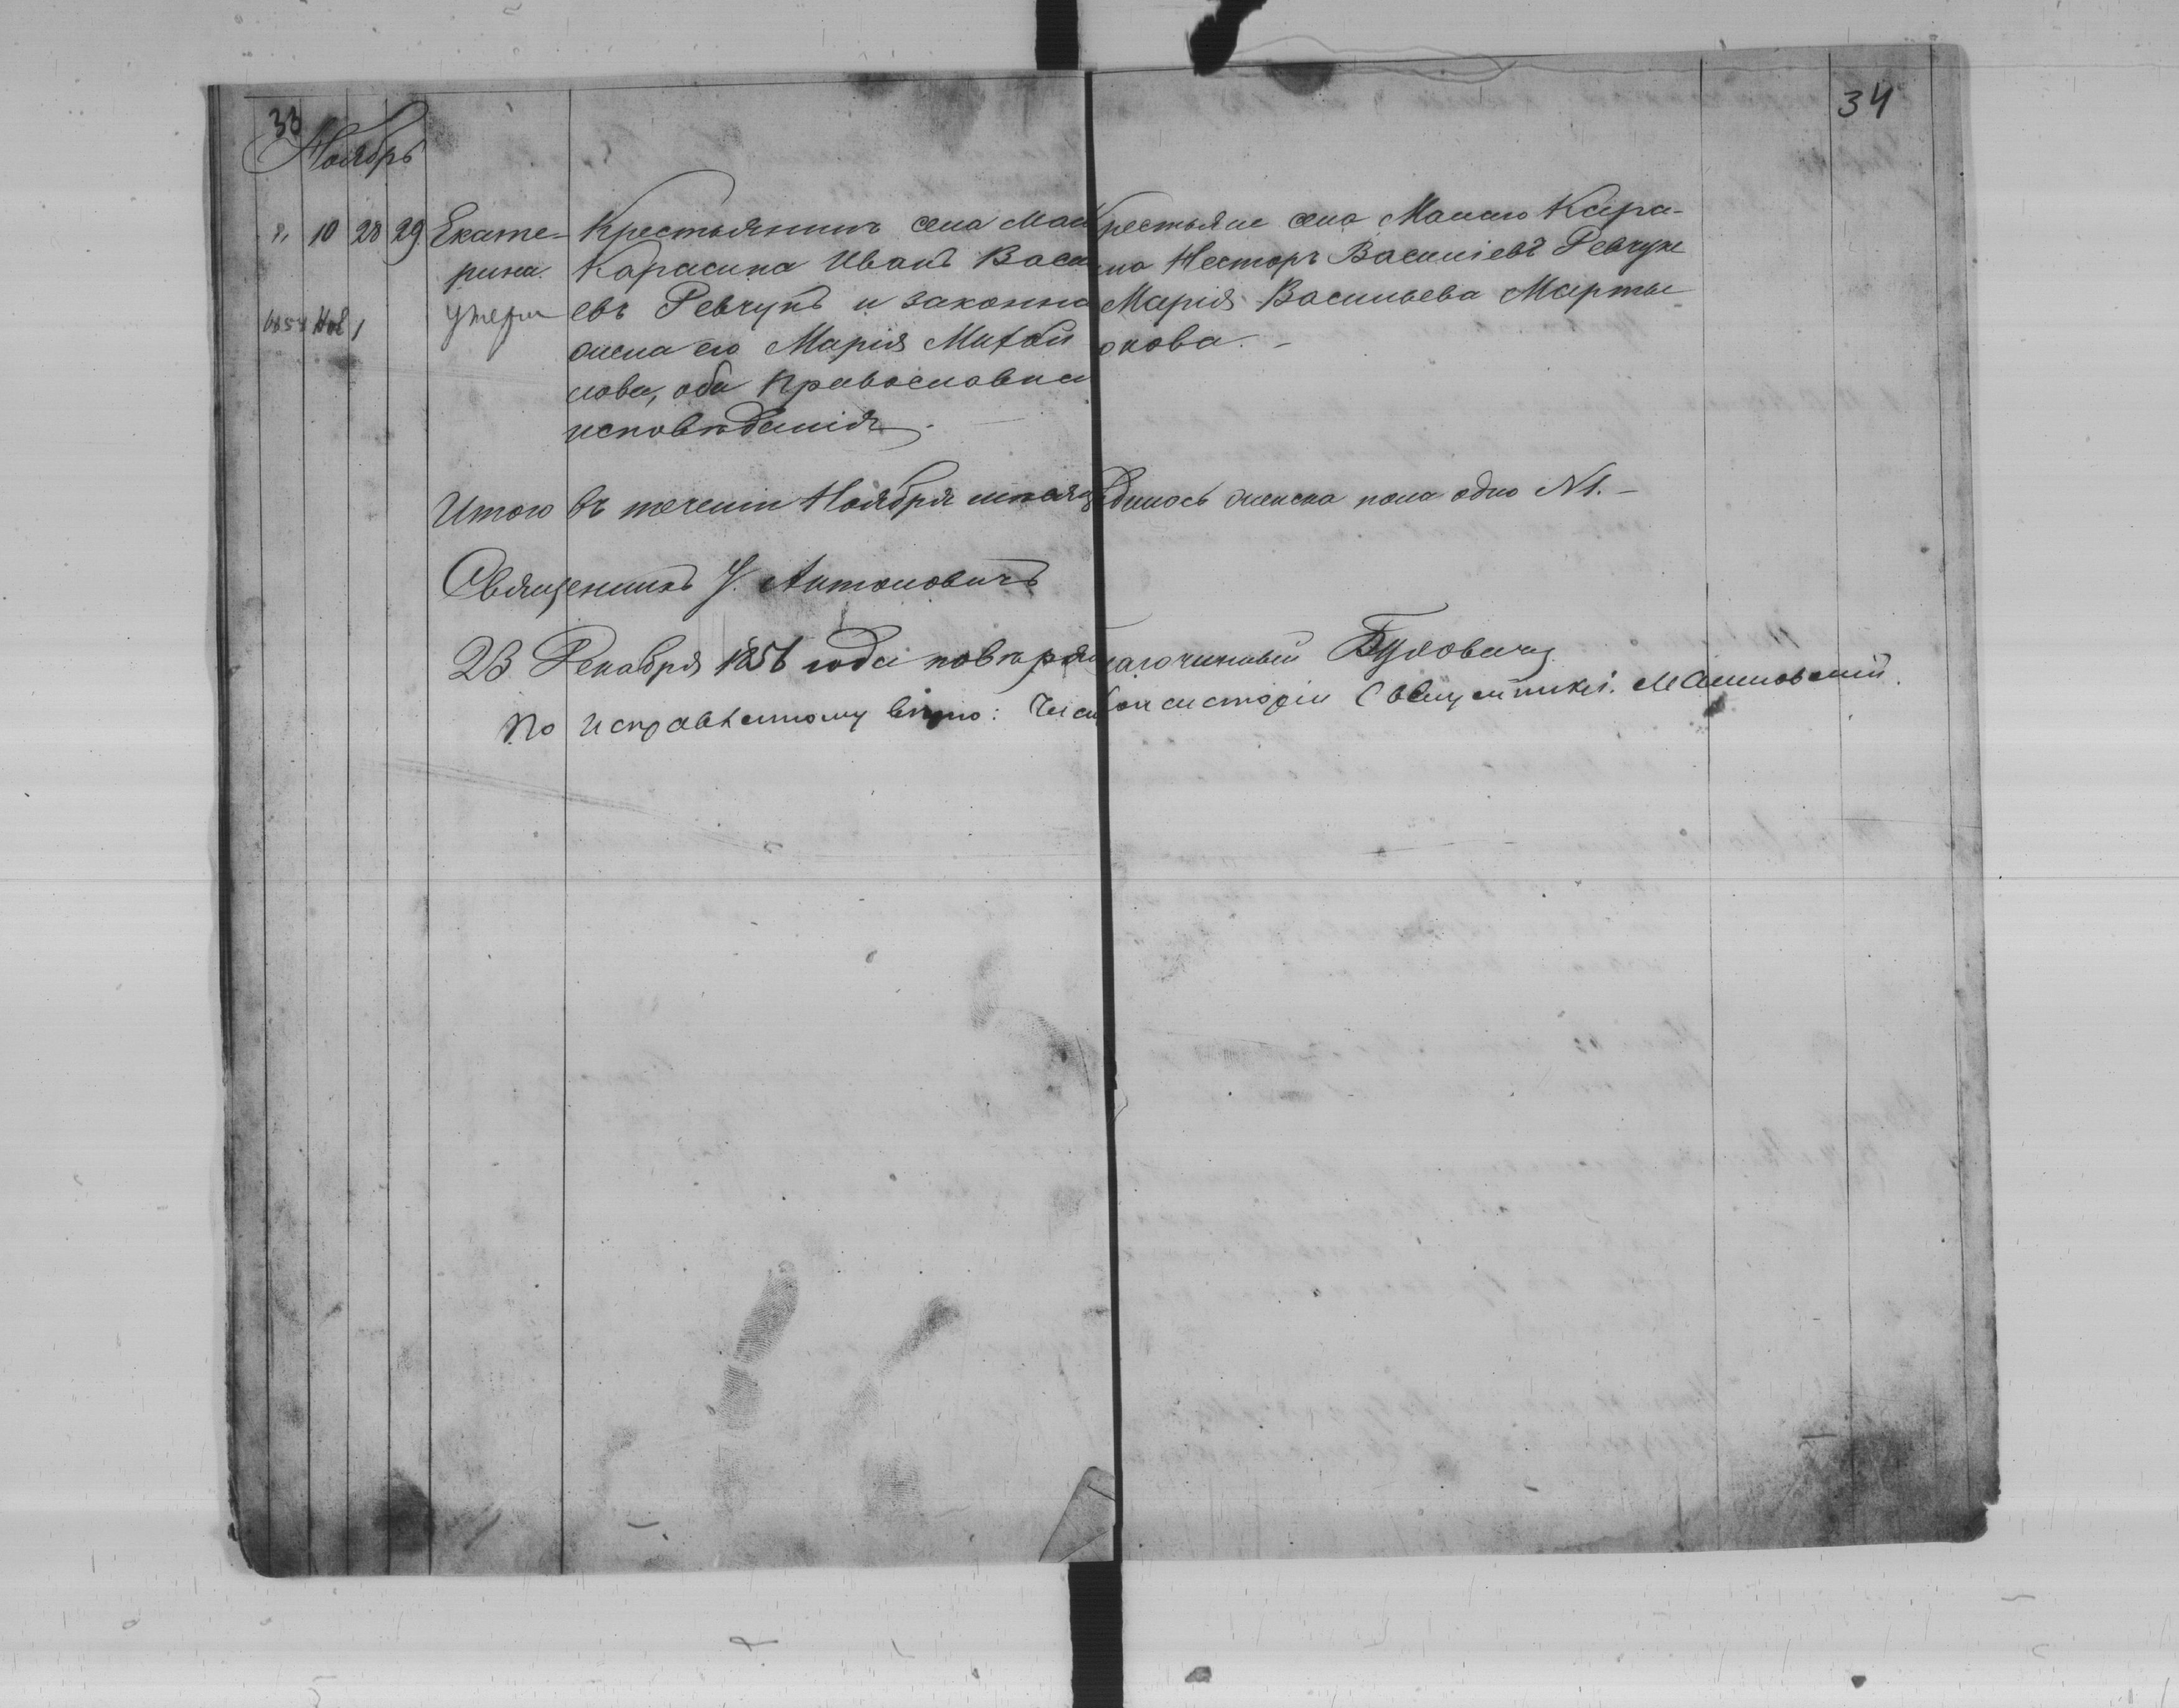 33
34
Ноябрь
10 28 29 Екате-
рина
умерла
1857 Ноя 1
Крестьянинъ села Мал
Карасина Иванъ Васи
евъ Ревчукъ и законна
жена его Марія Михай
лова, оба православна
исповѣданія.
Крестьяне села Малаго Кара-
ина Несторъ Василіевъ Ревчук
Марія Васильева Марты-
нова.
Итого въ теченіи Ноября мѣсяц дилось женска пола одно №1.
Священникъ Антоновичъ
23 Декабря 1856 года повѣрял лагочинный
По исправленному вѣрно: Член Консисторіи Священникъ І.